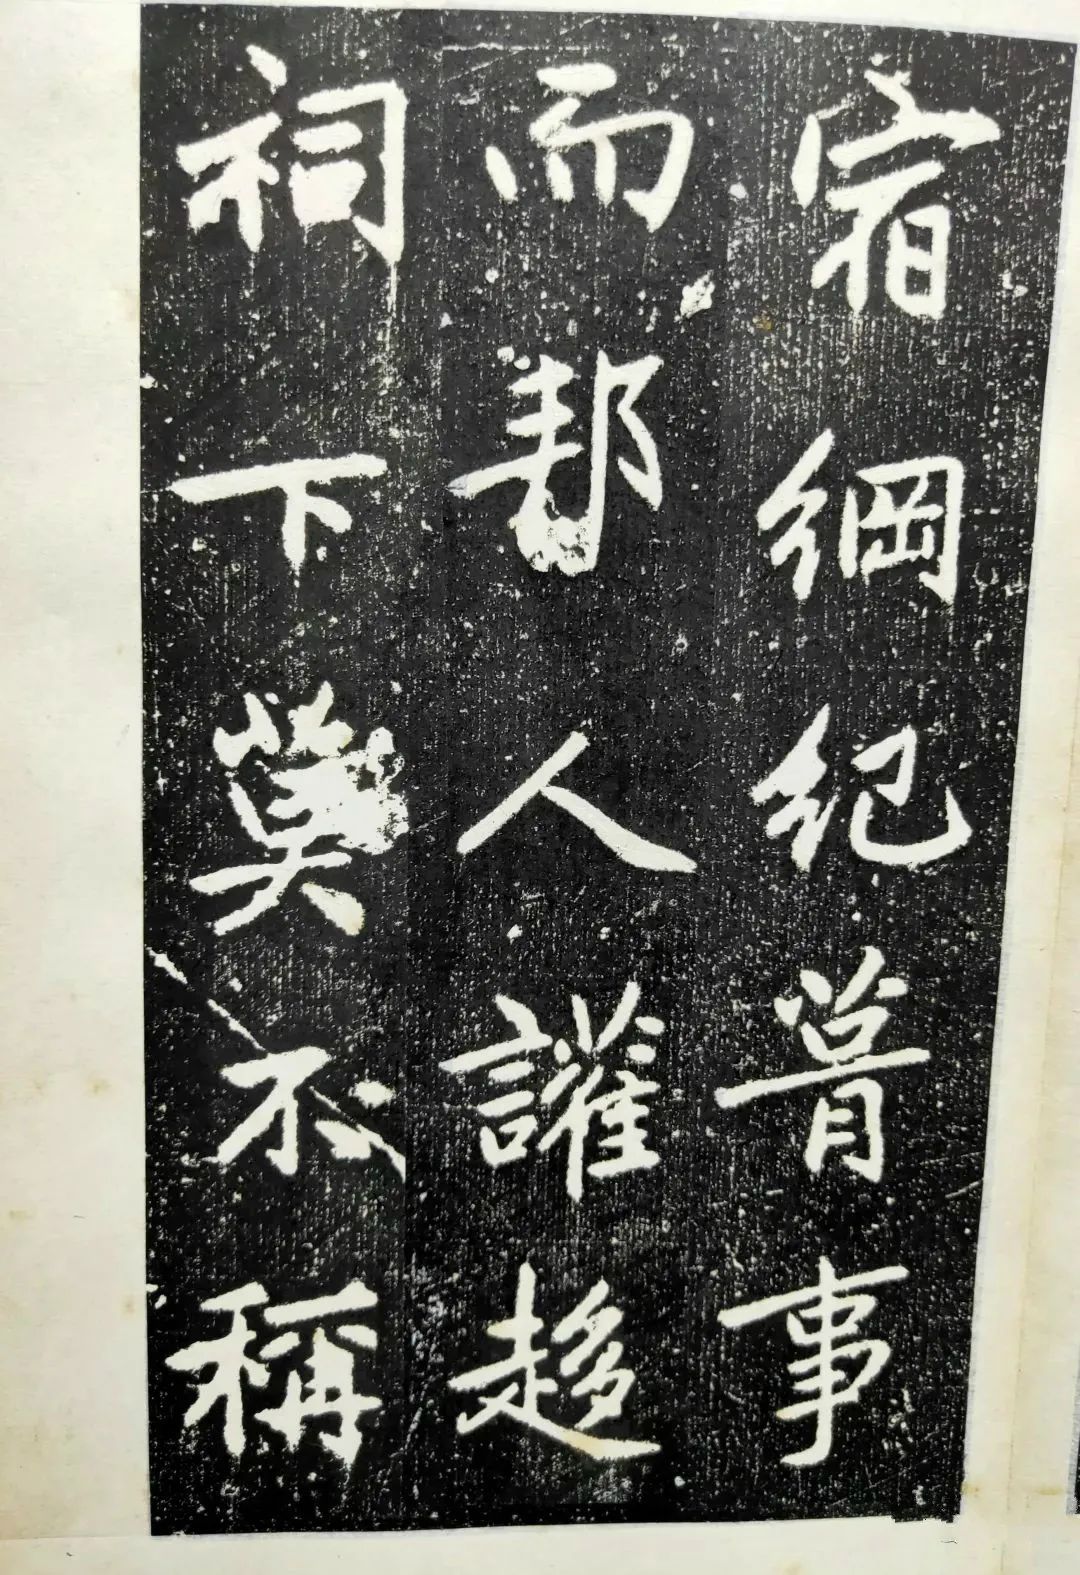 宿綱紀胥事
而邦人讙趍
祠下莫不稱